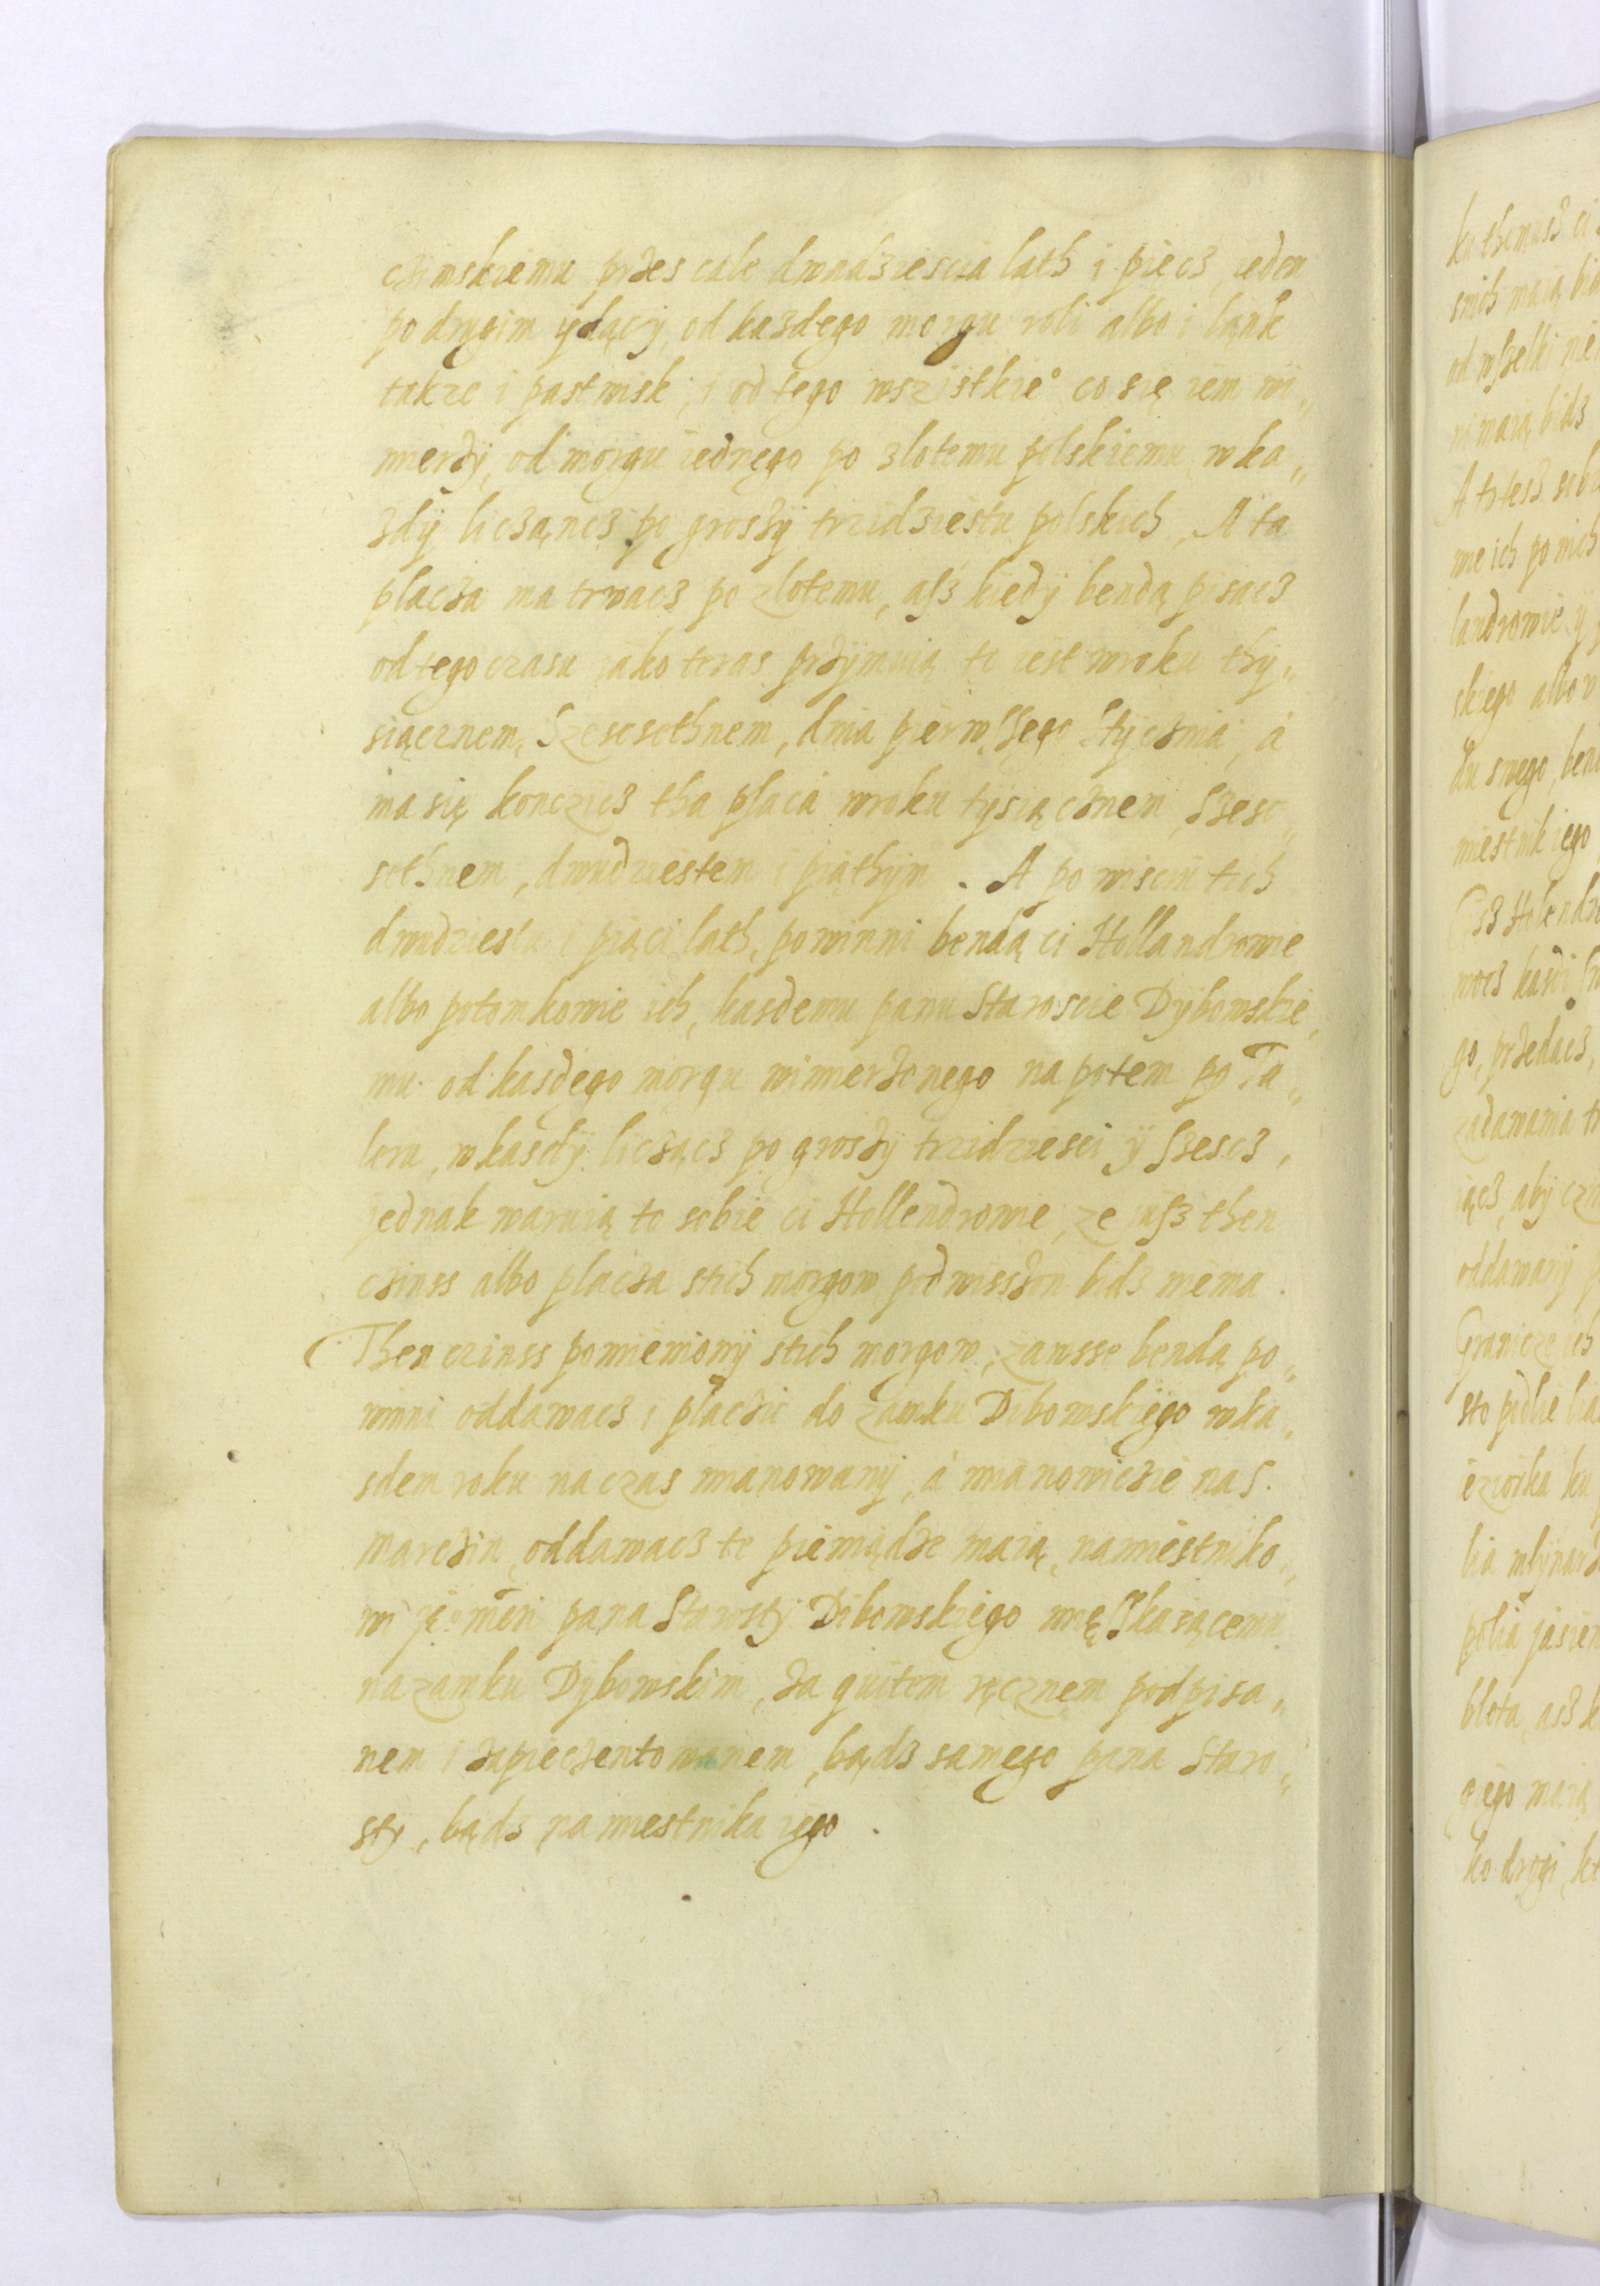 czimskiemu przes cale dwadziescia lath i pięcz, ieden
po drugim ydącÿ, od kazdego morgu roli albo i lank
takze i pastwisk, i od tego wszistkie° co się iem wi„
mierzÿ, od morgu iednego po złotemu polskiemu, w ka„
zdÿ licząncz po groszÿ trzidziestu polskich, A ta
płacza ma trwacz po złotemu, asz kiedÿ bendą pisacz
od tego czasu iako teras przÿmuią to iest w roku thÿ„
siącznem, Szescsethnem, dnia pierwssego Stÿcznia, á
ma się konczicz tha płaca w roku tysiącznem, Szesc„
sethnem, dwudziestem i piąthÿm. A po wisciu tich
dwudziestu i piąci lath, powinni bendą ci Hollandrowie
albo potomkowie ich, kasdemu panu Staroscie Dÿbowskie„
mu od kasdego morgu wimierzonego na potem po Ta„
leru, w kasdÿ licząncz po groszÿ trzidziesci ÿ szescz,
jednak waruią to sobie ci Hollendrowie, ze iusz then
czinss albo płacza s tich morgow podwisszon bidz niema.
Then czinss pomieniony s tich morgow, zawsse bendą po„
winni oddawacz i płaczic do zamku Dibowskiego w ka„
sdem roku na czas mianowany, á mianowiczie na S.
Marczin, oddawacz te pieniądze maią, namiestniko„
wi je°mści pana Starosty Dibowskiego mięszkaiącemu
na zamku Dybowskim, za quitem ręcznem podpisa„
nem i zapieczentowanem, bądz samego pana Staro„
sty, bądz namiestnika iego.
ku themusz ci
snich maią bid
od wszelki
ni maią bidz
A tesz
me ich po nich
landrowie ÿ
skiego albo
du swego, bend
miestnik iego
Cisz Holendr
mocz kasdi
go, przedacz,
zadawania
iącz, aby
oddawany
Granicze ich
sto podlie
ieziorka ku
lia mlynar
polia
blota, asz k
giego maią
ko drogi, kt